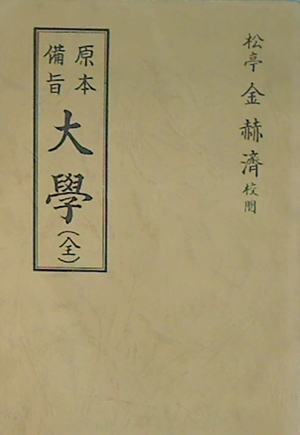 松亭 金赫濟 校閱
原本
備旨
大學(全)